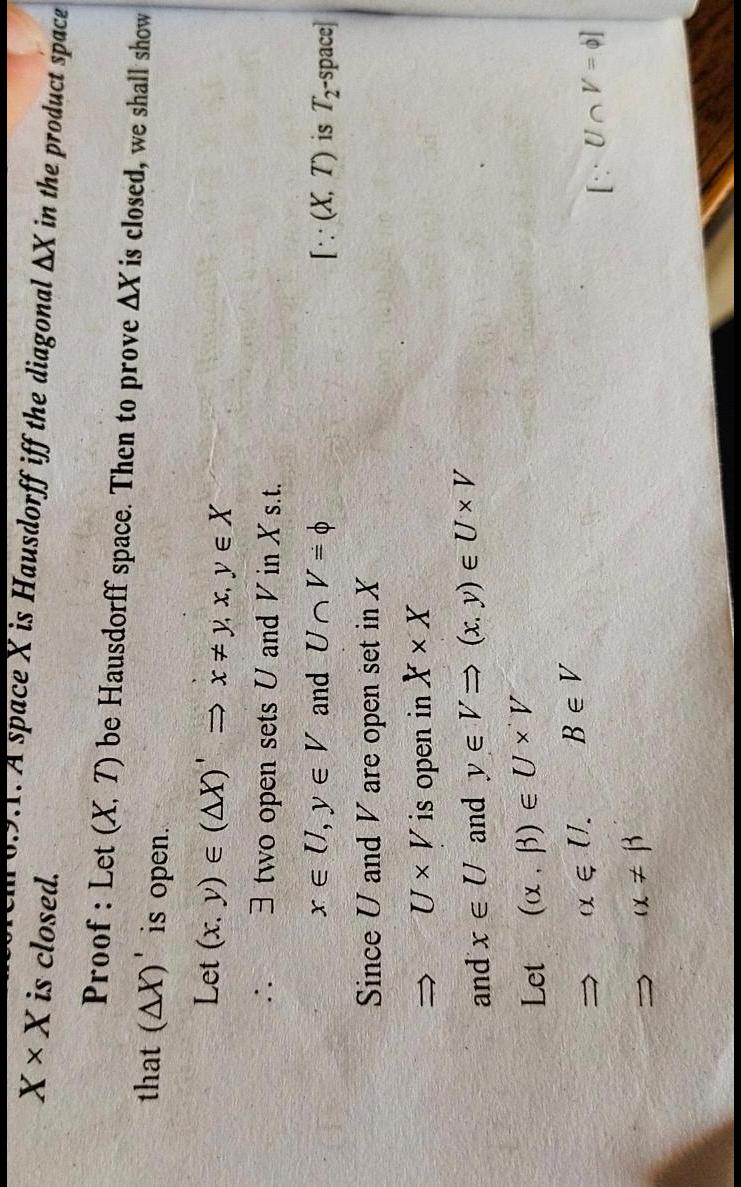 A space X is Hausdorff iff the diagonal ΔX in the product space
X × X is closed.
Proof : Let (X, T) be Hausdorff space. Then to prove ΔX is closed, we shall show
that (ΔX)' is open.
Let (x, y) ∈ (ΔX)' ⇒ x ≠ y, x, y ∈ X
∴ ∃ two open sets U and V in X s.t.
x ∈ U, y ∈ V and U ∩ V = ϕ [∵ (X, T) is T₂-space]
Since U and V are open set in X
⇒ U × V is open in X × X
and x ∈ U and y ∈ V ⇒ (x, y) ∈ U × V
Let (α, β) ∈ U × V
⇒ α ∈ U, B ∈ V
⇒ α ≠ β [∵ U ∩ V = ϕ]